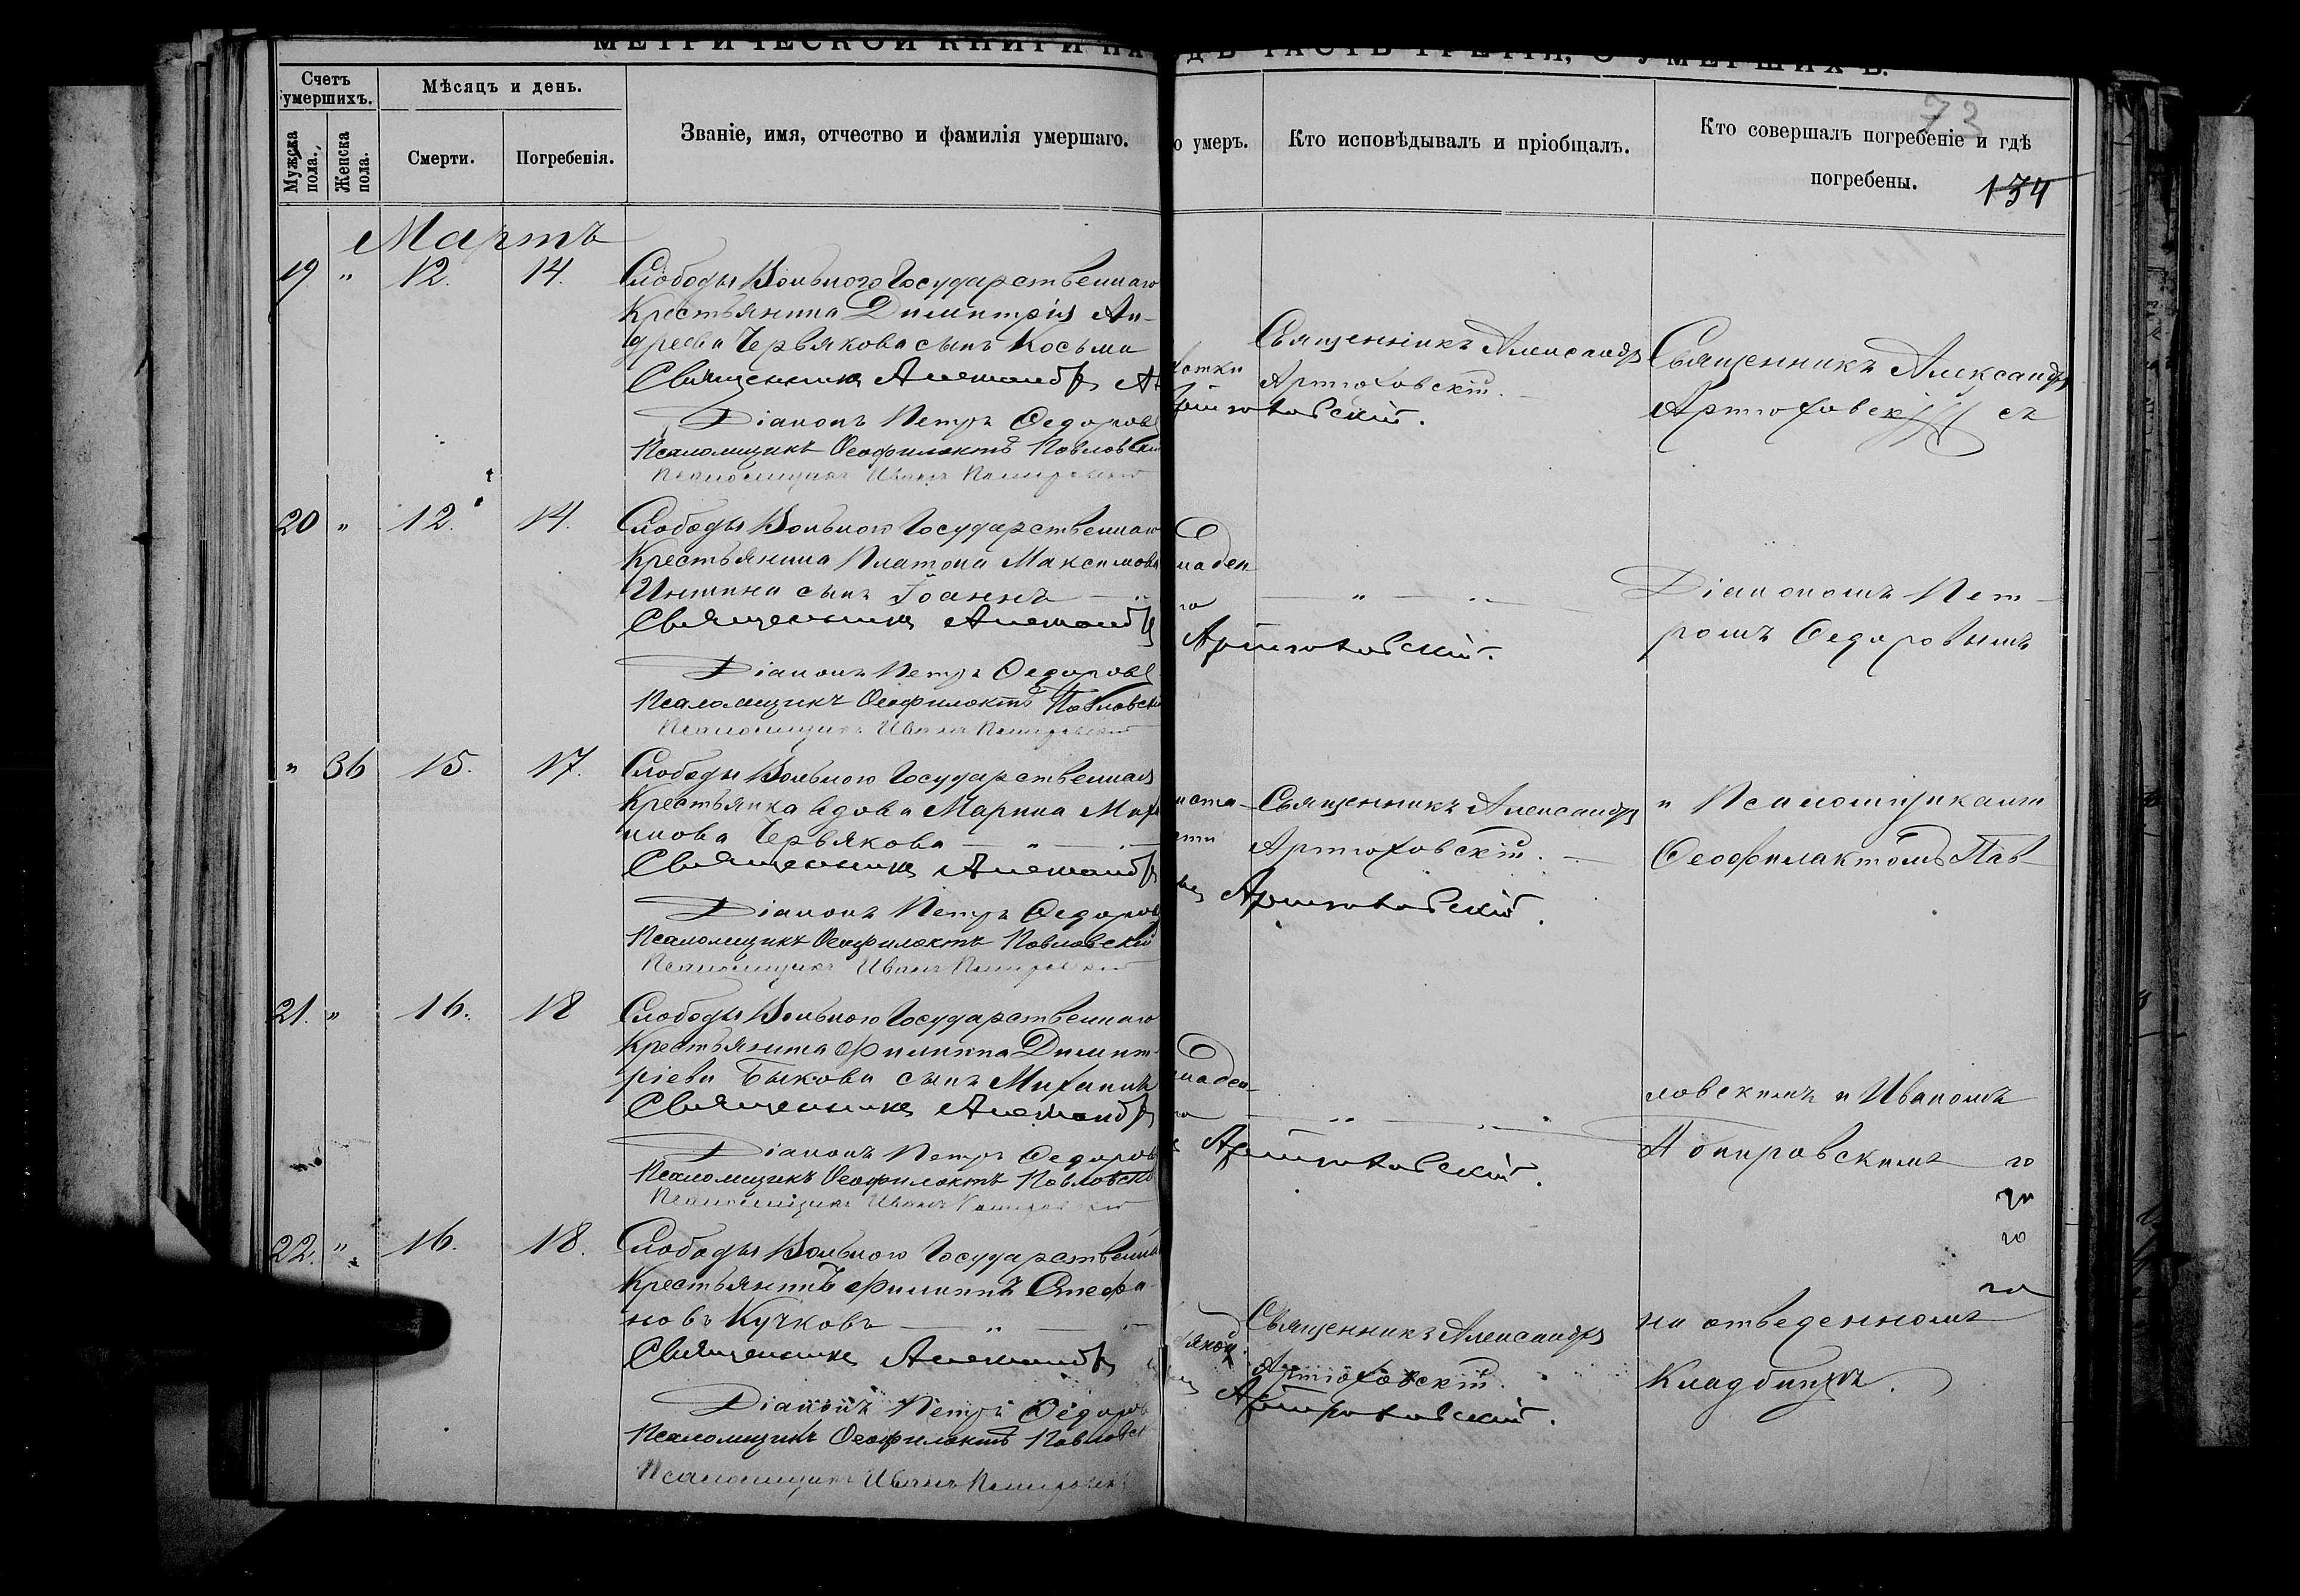 МЕТРИЧЕСКОЙ КНИГИ НА
ДЪ ЧАСТЬ ТРЕТІЯ, О УМЕРШИХЪ.
Счетъ умершихъ.
Мѣсяцъ и день.
Мужска пола.
Женска пола.
Смерти.
Погребенія.
Званіе, имя, отчество и фамилія умершаго.
о умеръ.
Кто исповѣдывалъ и пріобщалъ.
Кто совершалъ погребеніе и гдѣ
погребены.
73
134
Мартъ
19 " 12. 14.
Слободы Вольного Государственнаго
Крестьянина Димитрія Ан-
дреева Червякова сынъ Косьма
Священникъ Александръ А
Діаконъ Петръ Ѳедоровъ
Псаломщикъ Ѳеофилактъ Павловскій
Псаломщикъ Иванъ
Священникъ Александръ
Артюховскій.
Артюховскій.
Священникъ Александръ
Артюховскій съ
20 " 12. 14.
Слободы Вольного Государственнаго
Крестьянина Платона Максимова
сынъ Іоаннъ
Священникъ Александръ
Діаконъ Петръ Ѳедоровъ
Псаломщикъ Ѳеофилактъ Павловскій
Псаломщикъ Иванъ
младен
Артюховскій.
Діакономъ Пет-
ромъ Ѳедоровымъ
" 36 15. 17.
Слободы Вольного Государственная
Крестьянка вдова Марина
Червякова
Священникъ Александръ
Діаконъ Петръ Ѳедоровъ
Псаломщикъ Ѳеофилактъ Павловскій
Псаломщикъ Иванъ
Священникъ Александръ
Артюховскій.
Артюховскій.
и Псаломщиками
Ѳеофилактомъ Пав-
21. " 16. 18
Слободы Вольного Государственнаго
Крестьянина Филиппа Димит-
ріева Быкова сынъ Михаилъ
Священникъ Александръ
Діаконъ Петръ Ѳедоровъ
Псаломщикъ Ѳеофилактъ Павловскій
Псаломщикъ Иванъ
младен-
Артюховскій.
ловскимъ и Иваномъ
22. " 16. 18.
Слободы Вольного Государственный
Крестьянинъ Филиппъ Стефа-
новъ Кучковъ
Священникъ Александръ
Діаконъ Петръ Ѳедоровъ
Псаломщикъ Ѳеофилактъ Павловск
Псаломщикъ Иванъ
Священникъ Александръ
Артюховскій.
Артюховскій.
на отведенномъ
Кладбищѣ.